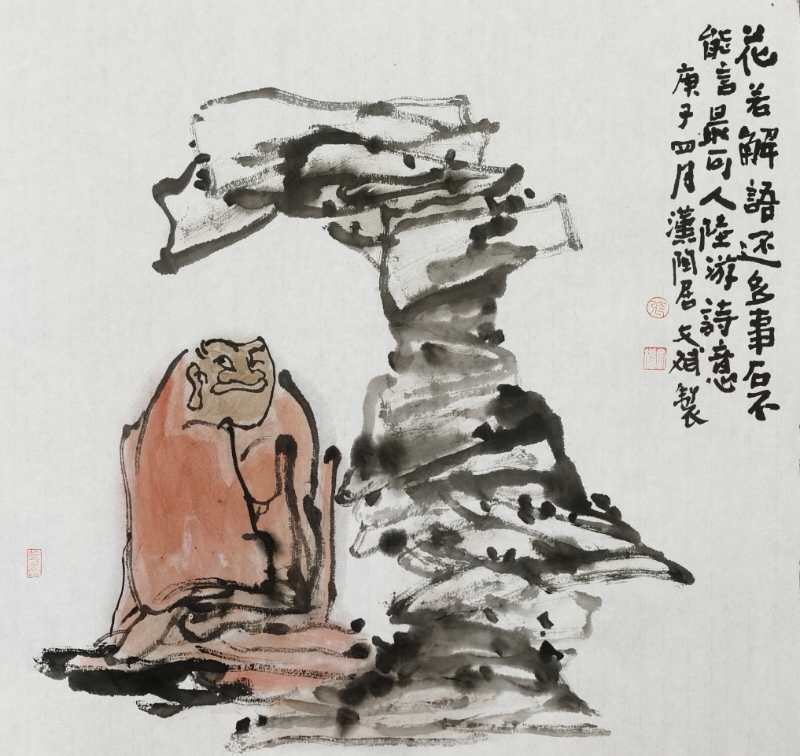 花若解語還多事石不
能言最可人陸游詩意
庚子四月漢陶居文斌製